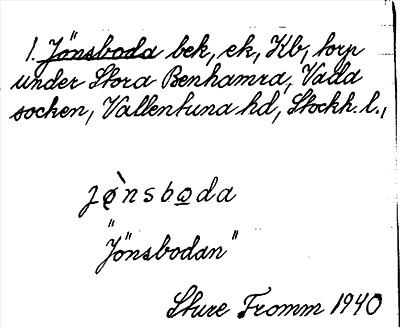 1. Jönsboda bek, ek, Kb, torp
under Stora Benhamra, Vada
socken, Vallentuna hd, Stockh. l.,
jø̀nsbo̲da
"Jönsbodan"
Sture Fromm 1940